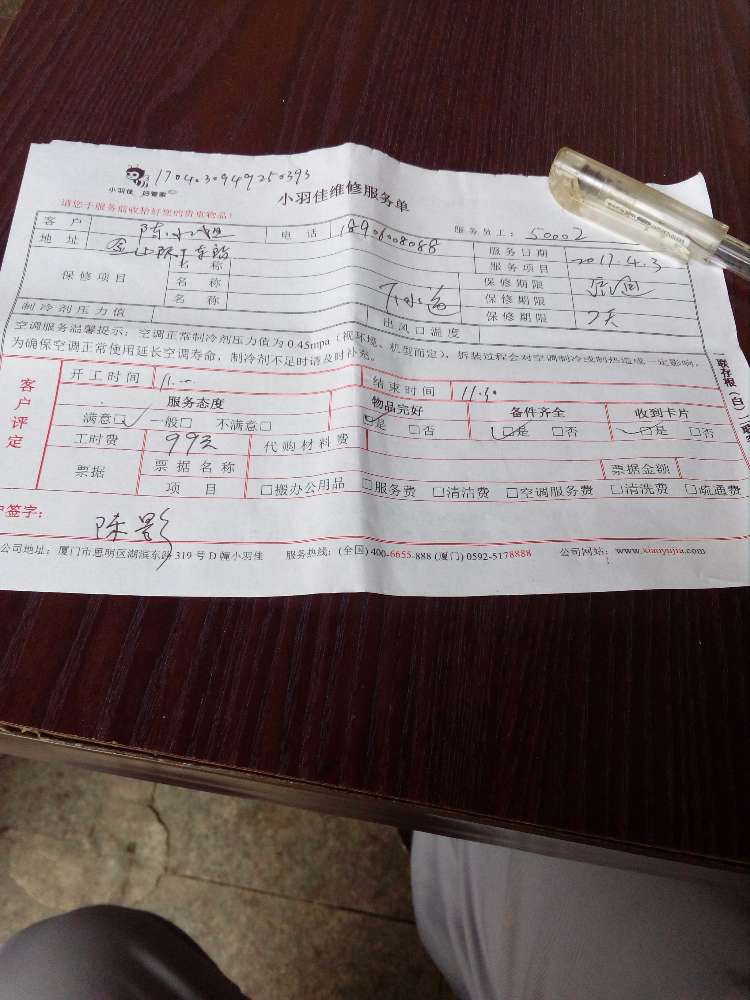 1704030949250393
小羽佳 好管家
小羽佳维修服务单
请您于服务前收拾好您的贵重物品！
服务员工： 50002
客户 陈 电话 18906008088 服务日期 2017.4.3
地址 服务项目
保修项目 名称 下水道 保修期限 疏通
名称 保修期限
名称 保修期限 7天
制冷剂压力值 出风口温度
空调服务温馨提示：空调正常制冷剂压力值为0.45mpa（视环境、机型而定），拆装过程会对空调制冷或制热造成一定影响，
为确保空调正常使用延长空调寿命，制冷剂不足时请及时补充。
客户评定
开工时间 11. 结束时间 11.30
服务态度 物品完好 备件齐全 收到卡片
满意□ 一般□ 不满意□ □是 □否 □是 □否 □是 □否
工时费 99元 代购材料费
票据 票据名称 票据金额
项目 □搬办公用品 □服务费 □清洁费 □空调服务费 □清洗费 □疏通费
户签字： 陈影
公司地址：厦门市思明区湖滨东路319号D幢小羽佳 服务热线：(全国) 400-6655-888 (厦门) 0592-5178888 公司网站：www.xiaoyujia.com
一联存根（白）